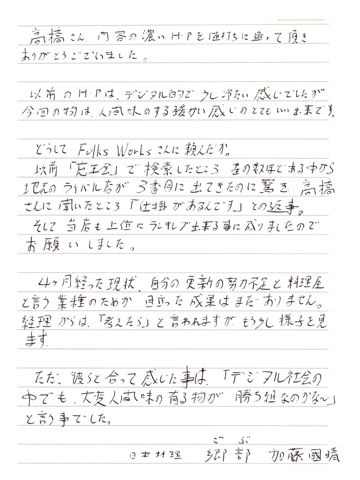 高橋さん 内容の濃いH・Pを値打ちに造って頂き
ありがとうございました。
以前のH・Pは、デジタル的で少し冷たい感じでしたが
今回の物は、人間味のする暖かい感じのとてもいい出来です。
どうしてFulks Worksさんに頼んだか。
以前「忘年会」で検索したところ 星の数ほどある中から
地元のライバル店が3番目に出てきたのに驚き 高橋
さんに聞いたところ「仕掛があるんです」との返事。
そして当店も上位にランキング出来る事に成りましたので
お願いしました。
4ヶ月経った現状、自分の更新の努力不足と料理屋
と言う業種のためか 目立った成果はまだありません。
経理からは、「考えたら」と言われますが もう少し様子を見
ます。
ただ、彼らと合って感じた事は、「デジタル社会の
中でも、大変人間味の有る物が 勝ち組なのかな〜」
と言う事でした。
日本料理 郷部 ごぶ 加藤國晴